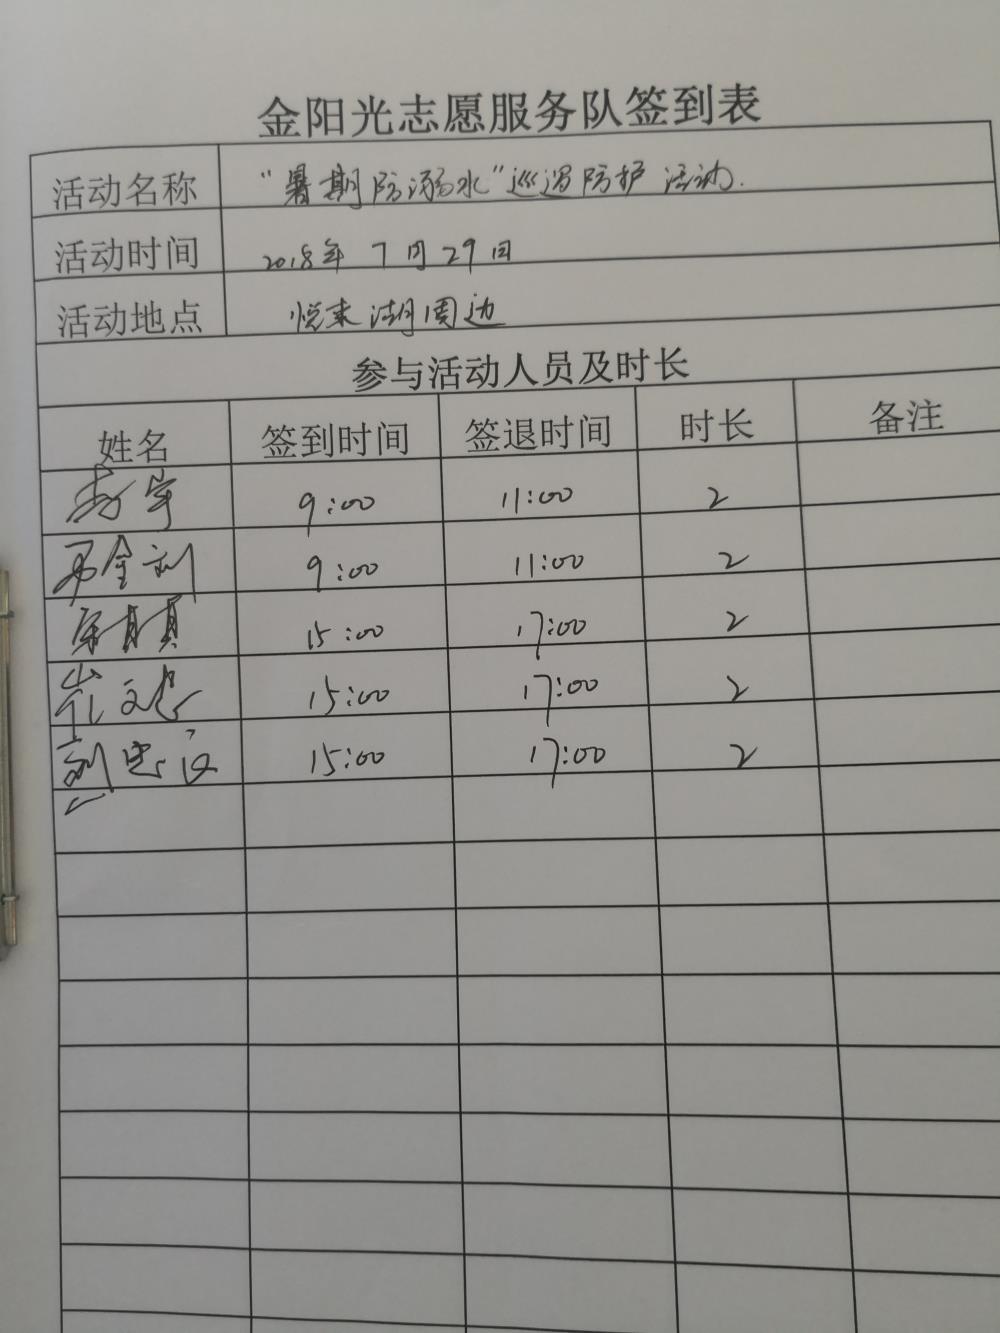 金阳光志愿服务队签到表
活动名称 "暑期防溺水"巡逻防护活动.
活动时间 2018年7月29日
活动地点 悦来湖周边
参与活动人员及时长
姓名 签到时间 签退时间 时长 备注
9:00 11:00 2
9:00 11:00 2
15:00 17:00 2
崔文 15:00 17:00 2
刘忠议 15:00 17:00 2